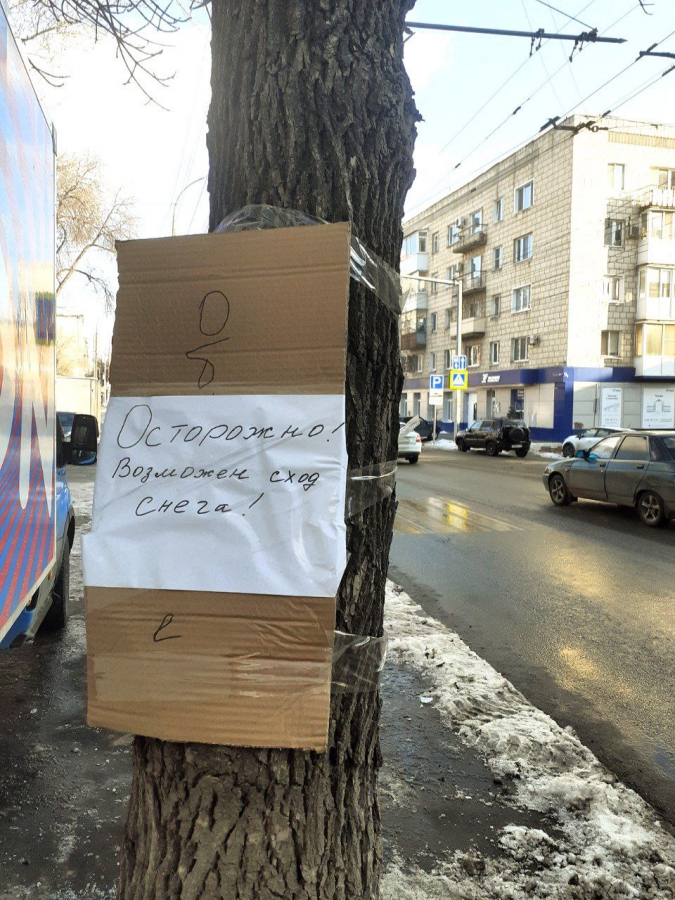 О
б
Осторожно!
Возможен сход
снега!
е
P